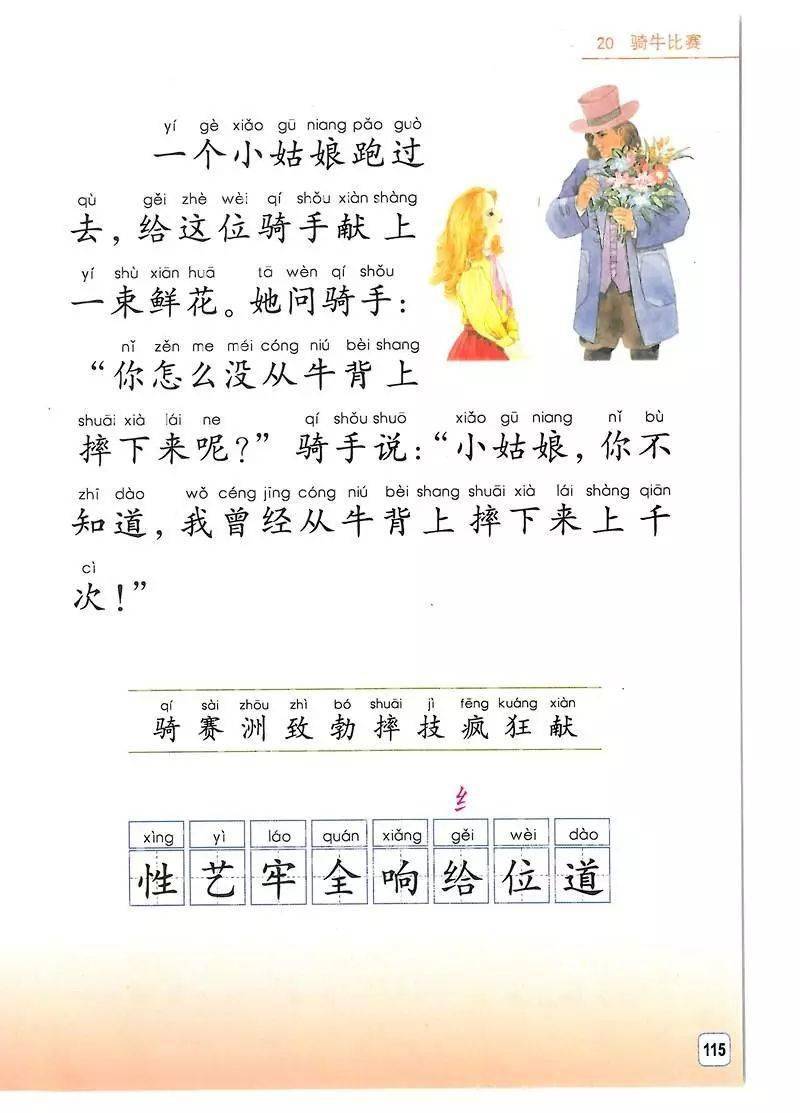 20 骑牛比赛
yí gè xiǎo gū niang pǎo guò
一个小姑娘跑过
qù gěi zhè wèi qí shǒu xiàn shàng
去，给这位骑手献上
yí shù xiān huā tā wèn qí shǒu
一束鲜花。她问骑手：
nǐ zěn me méi cóng niú bèi shang
“你怎么没从牛背上
shuāi xià lái ne qí shǒu shuō xiǎo gū niang nǐ bù
摔下来呢？”骑手说：“小姑娘，你不
zhī dào wǒ céng jīng cóng niú bèi shang shuāi xià lái shàng qiān
知道，我曾经从牛背上摔下来上千
cì
次！”
qí sài zhōu zhì bó shuāi jì fēng kuáng xiàn
骑赛洲致勃摔技疯狂献
纟
xìng yì láo quán xiǎng gěi wèi dào
性艺牢全响给位道
115